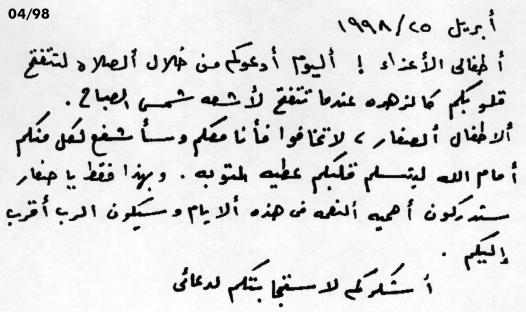 04/98
أبريل ٢٥/ ١٩٩٨
أطفالى الأعزاء ! أليوم أدعوكم من خلال ألصلاه لتتفتح
قلوبكم كالزهره عندما تتفتح لأشعه شمس الصباح .
ألاطفال ألصغار ، لاتخافوا فأنا معكم وسأشفع لكل منكم
أمام الله ليتسلم قلبكم عطيه التوبه . وبهذا فقط يا صغار
ستدركون أهميه ألنعمه فى هذه ألايام وسيكون الرب أقرب
إليكم .
أشكركم لاستجابتكم لدعائى